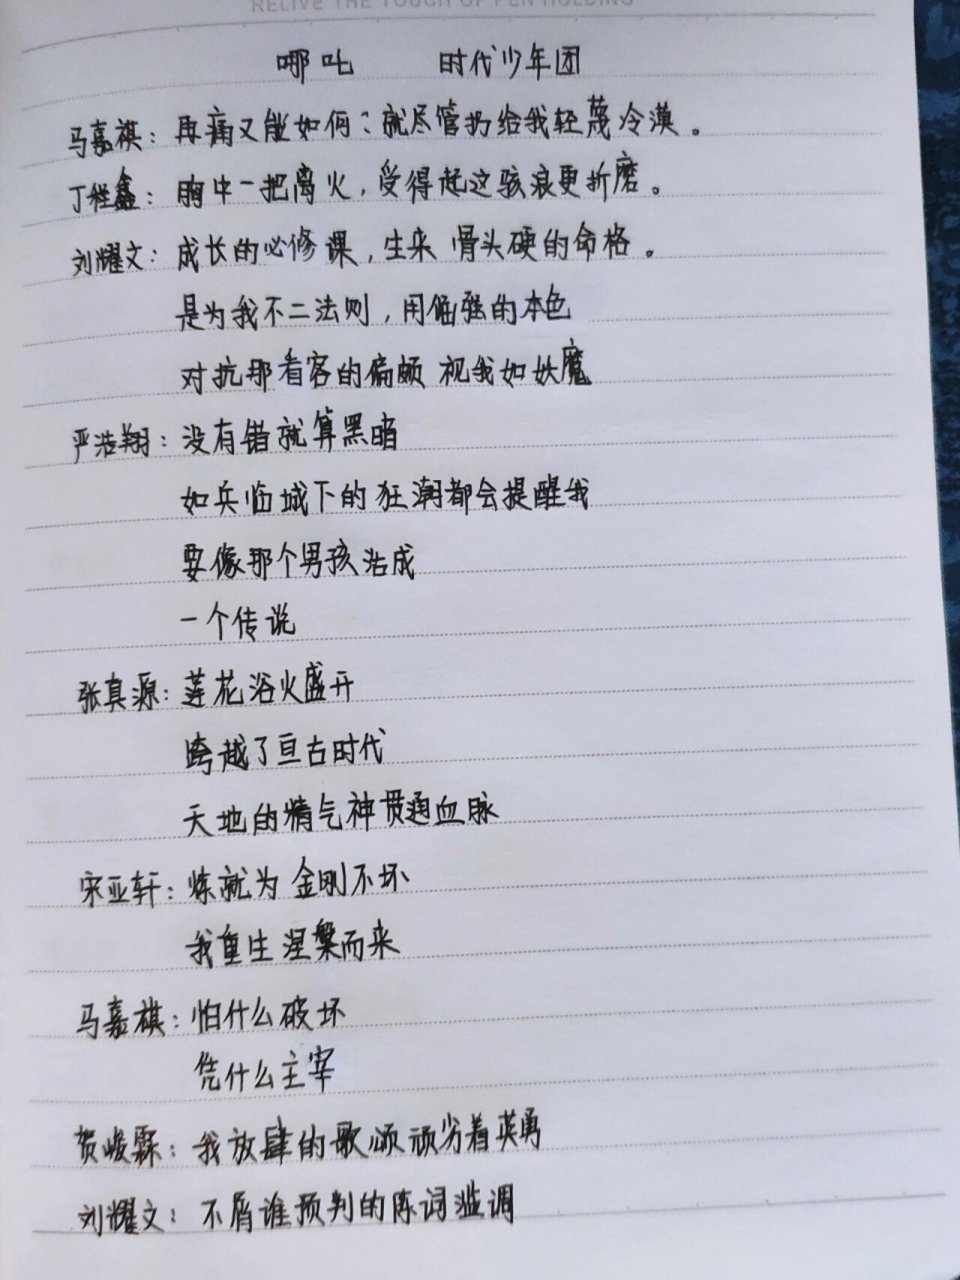 RELIVE THE TOUCH OF PEN HOLDING
哪吒 时代少年团
马嘉祺：再痛又能如何？就尽管扔给我轻蔑冷漠。
丁程鑫：胸中一把离火，受得起这骇浪更折磨。
刘耀文：成长的必修课，生来 骨头硬的命格。
是为我不二法则，用倔强的本色
对抗那看客的偏颇 视我如妖魔
严浩翔：没有错就算黑暗
如兵临城下的狂潮都会提醒我
要像那个男孩活成
一个传说
张真源：莲花浴火盛开
跨越了亘古时代
天地的精气神贯通血脉
宋亚轩：炼就为 金刚不坏
我重生 涅槃而来
马嘉祺：怕什么破坏
凭什么主宰
贺峻霖：我放肆的歌颂顽劣着英勇
刘耀文：不屑谁预判的陈词滥调